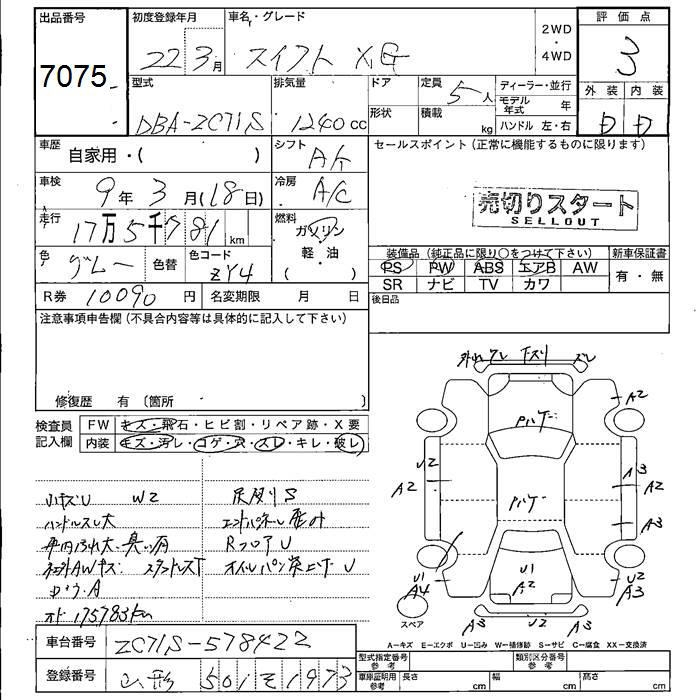 出品番号
7075
初度登録年月
22 3月
車名・グレード
スイフト XG
2WD
・
4WD
評価点
3
外装 内装
D D
型式
DBA-ZC71S
排気量
1240cc
ドア
形状
定員
5人
積載
kg
ディーラー・並行
モデル年式 年
ハンドル 左・右
車歴
自家用・( )
シフト
A/T
セールスポイント(正常に機能するものに限ります)
車検
9年3月(18日)
冷房
A/C
売切りスタート
SELLOUT
走行
17万5千781km
燃料
ガソリン
軽・油
( )
色
グレー
色替
色コード
ZY4
装備品(純正品に限り〇をつけて下さい)
PS PW ABS エアB AW
SR ナビ TV カワ
新車保証書
有・無
R券 10090円
名変期限 月 日
後日品
注意事項申告欄(不具合内容等は具体的に記入して下さい)
修復歴 有(箇所
検査員
記入欄
FW キズ・飛石・ヒビ割・リペア跡・X要
内装 キズ・汚レ・コゲ・穴・スレ・キレ・破レ
W2
ハンドルスレ大
RフロアU
オド 175783km
下スリ
A2
A3
A2
A3
U2
A3
U2
A2
U1
A4
U1
A2
A3
U2
A3
スペア
A-キズ E-エクボ U-凹み W-補修跡 S-サビ C-腐食 XX-交換済
車台番号
ZC71S-578422
登録番号
山形 501 そ 1973
型式指定番号
参考
類別区分番号
参考
車庫証明用
参考
長さ cm
幅 cm
高さ cm